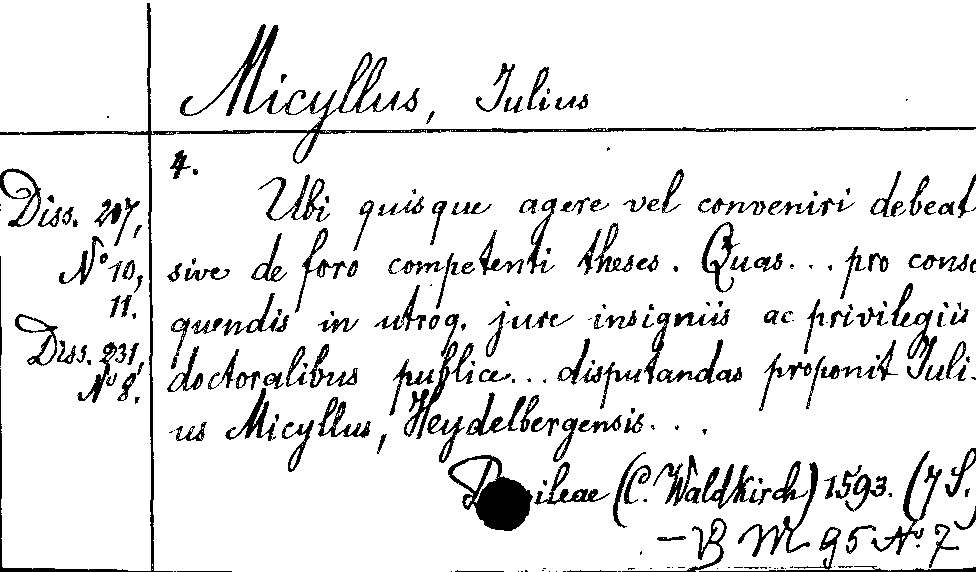 Micyllus, Julius
4.
Diss. 207,
No 10,
11.
Diss. 231,
No 8.
Ubi quisque agere vel conveniri debeat
sive de foro competenti theses. Quas... pro conse
quendis in utroq. jure insigniis ac privilegiis
doctoralibus publice... disputandas proponit Juli-
us Micyllus, Heydelbergensis...
(C. Waldkirch) 1593. (7 S.
— B M 95 No. 7